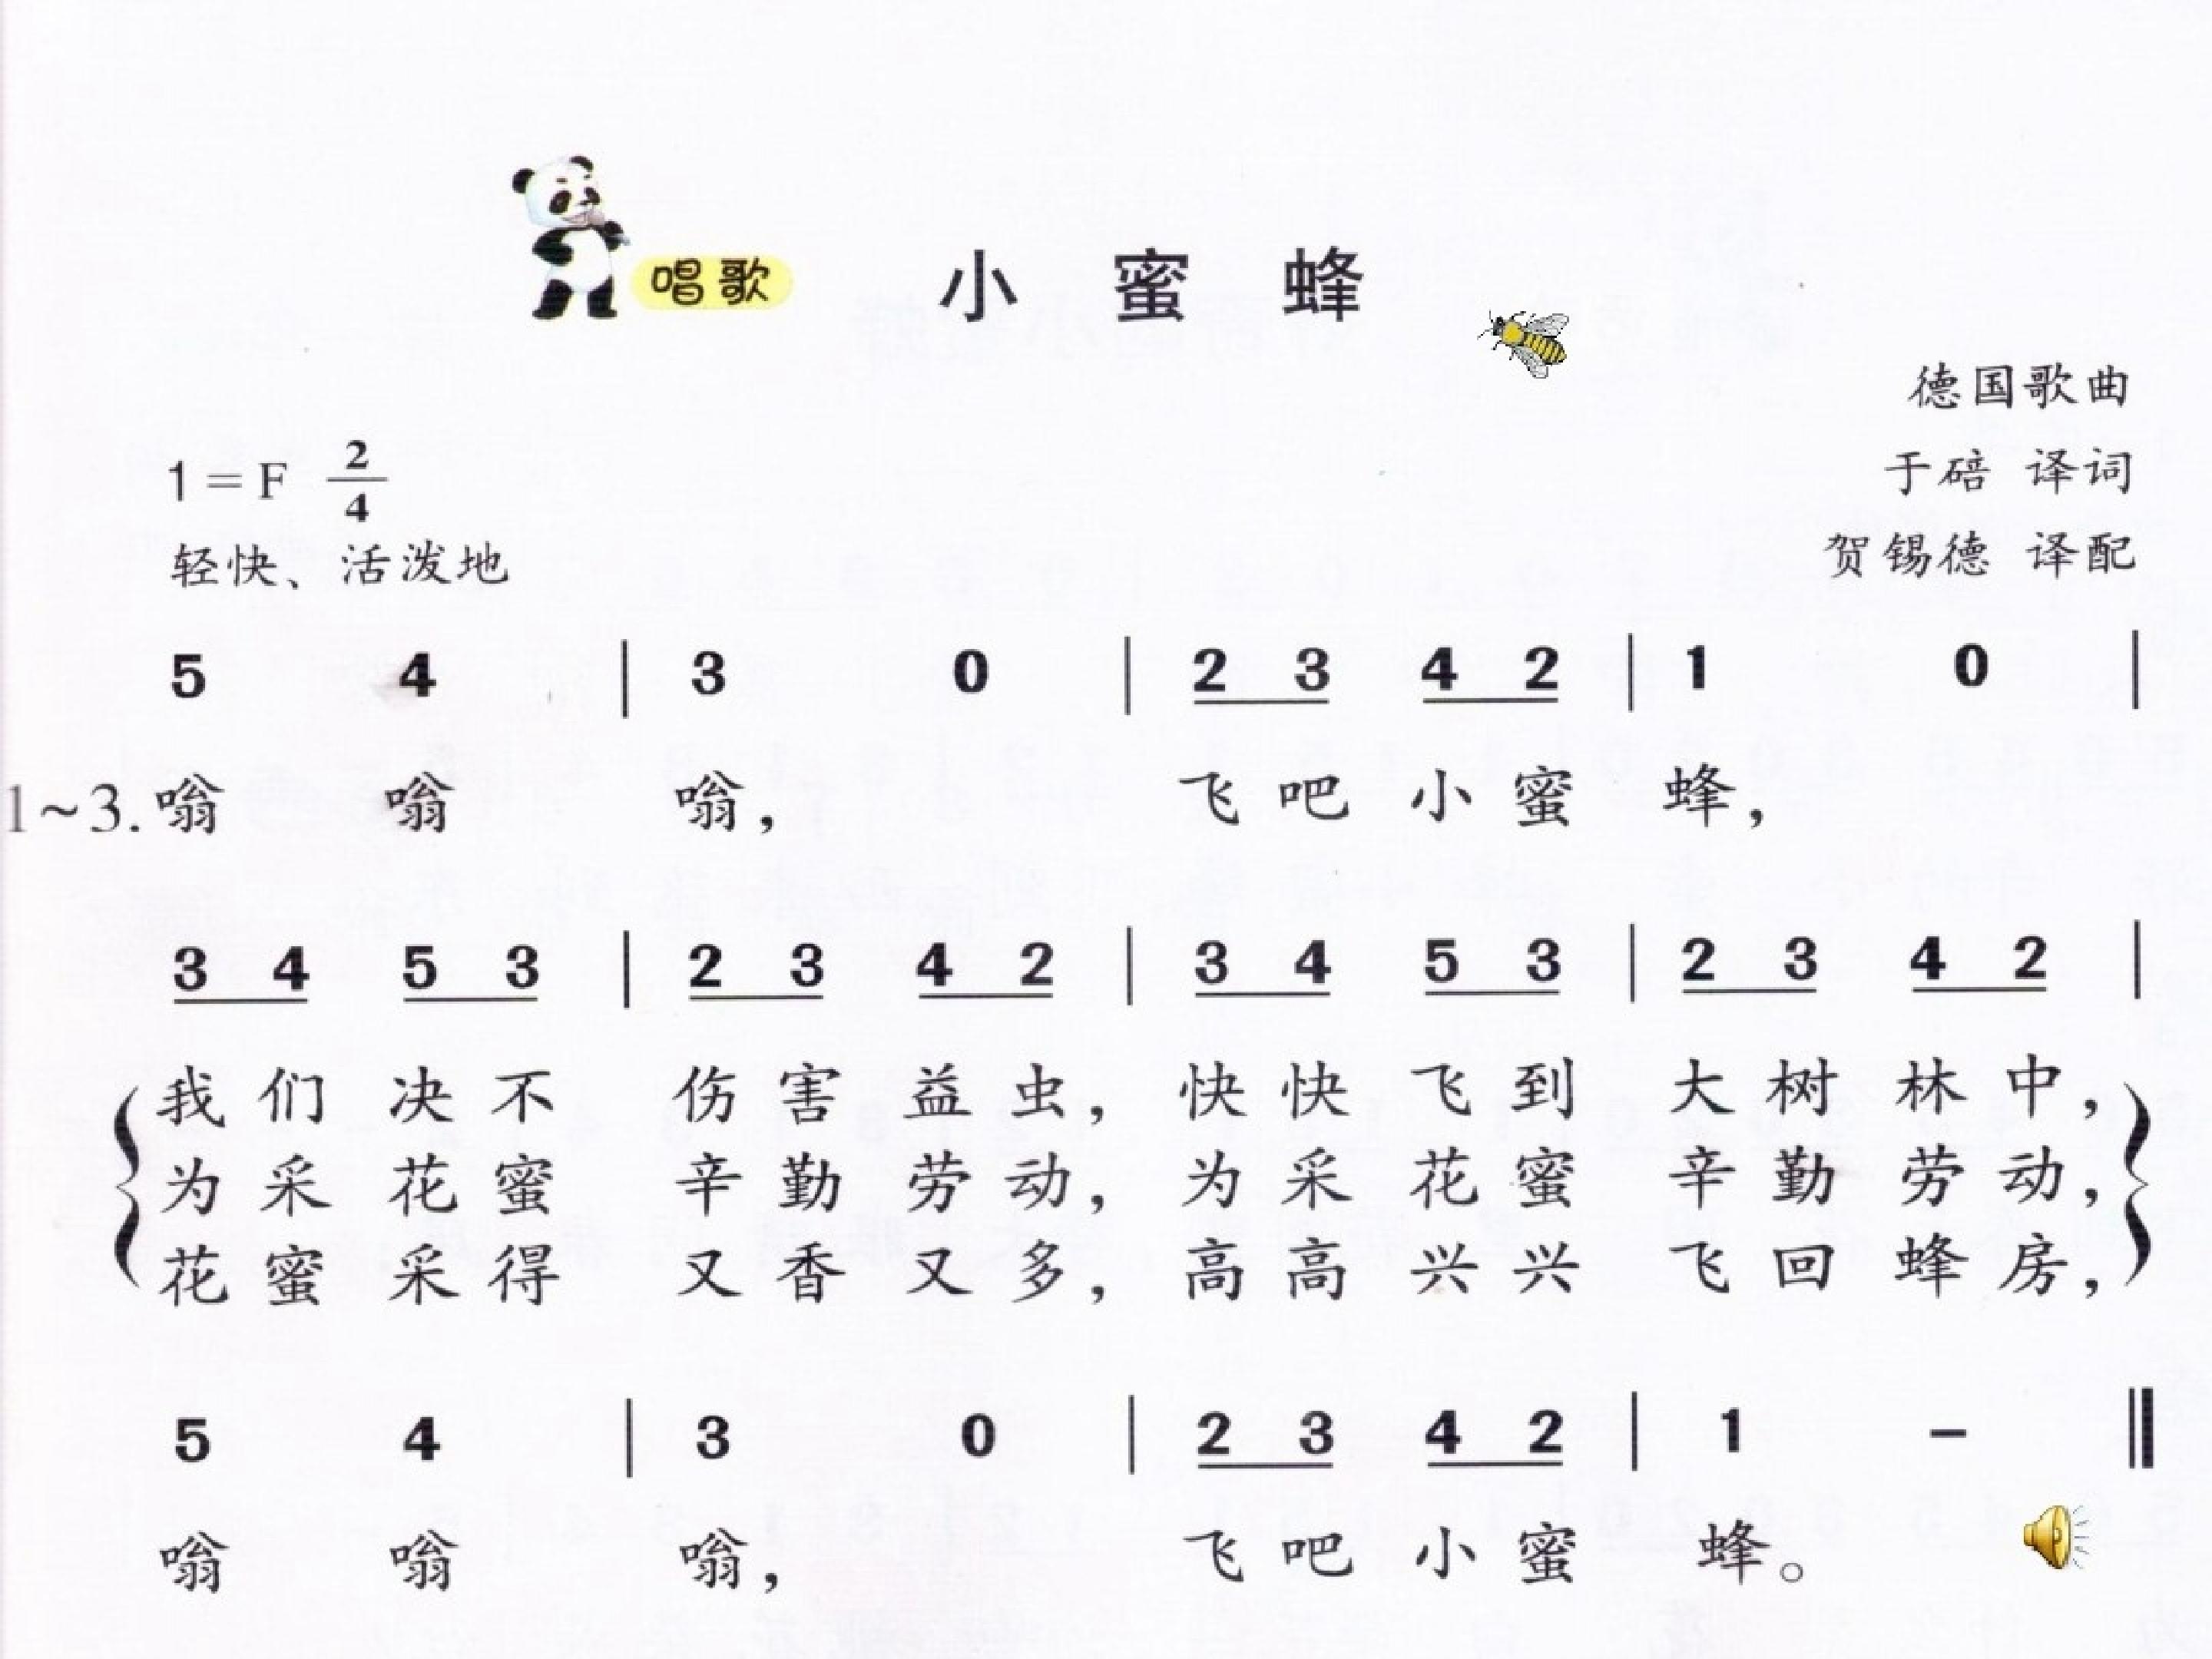 唱歌 小蜜蜂
德国歌曲
1=F 2/4
于碚 译词
轻快、活泼地
贺锡德 译配
5 4 | 3 0 | 2 3 4 2 | 1 0 |
1~3. 嗡 嗡 嗡， 飞吧小蜜 蜂，
3 4 5 3 | 2 3 4 2 | 3 4 5 3 | 2 3 4 2 |
我们决不 伤害益虫，快快飞到 大树林中，
为采花蜜 辛勤劳动，为采花蜜 辛勤劳动，
花蜜采得 又香又多，高高兴兴 飞回蜂房，
5 4 | 3 0 | 2 3 4 2 | 1 – ‖
嗡 嗡 嗡， 飞吧小蜜 蜂。